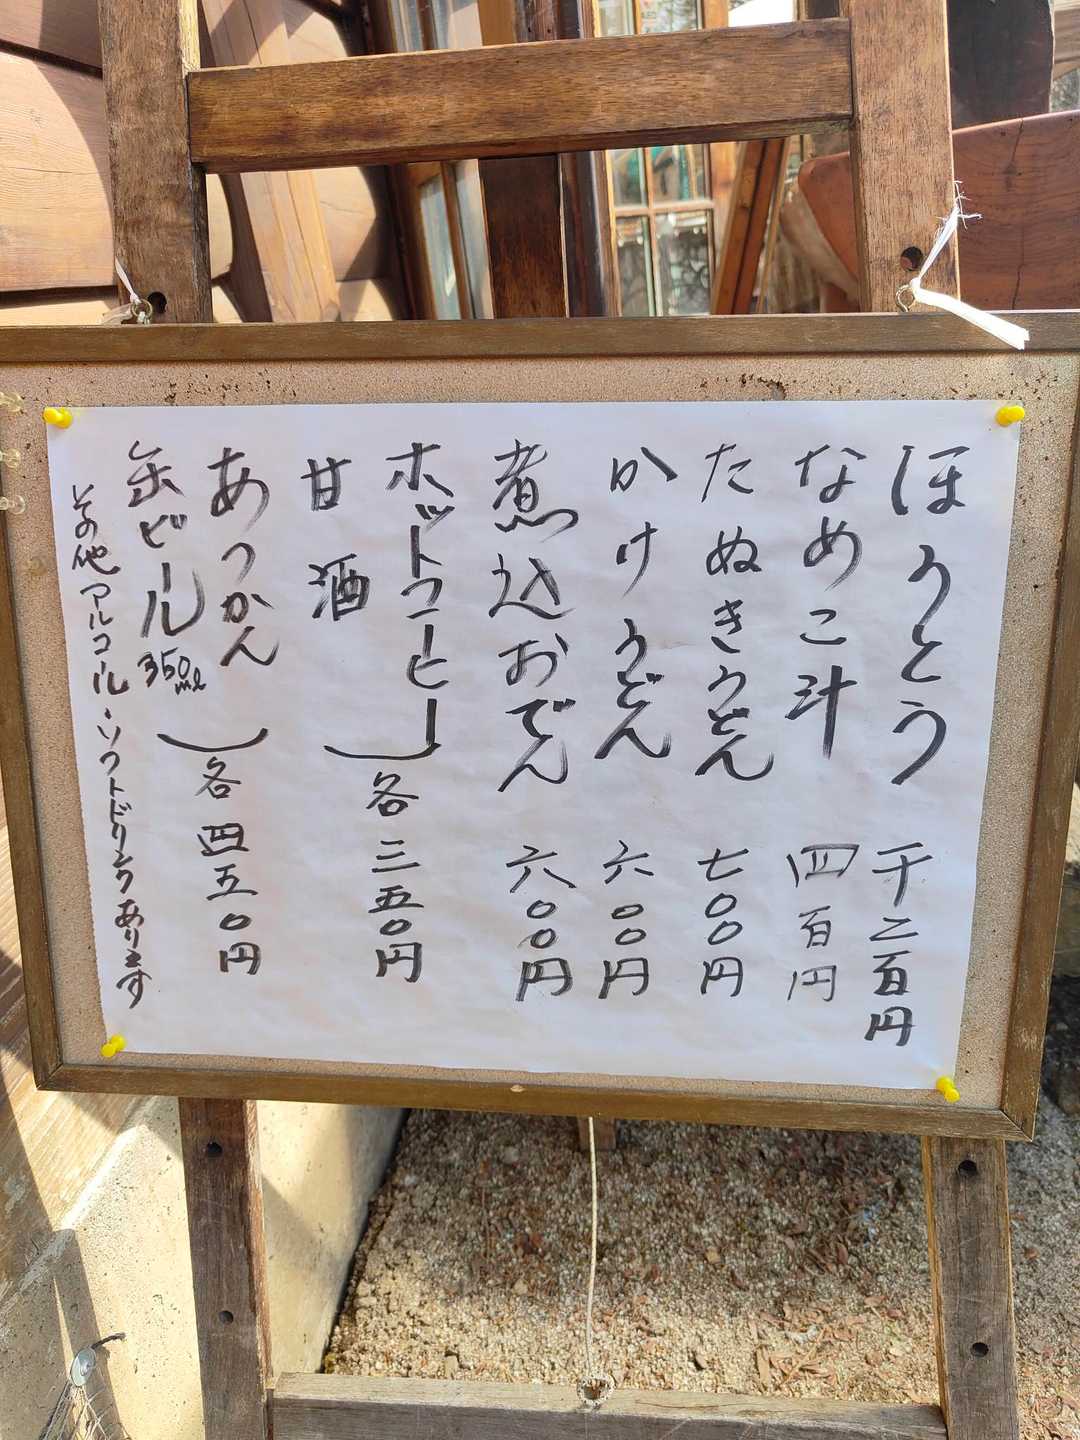 ほうとう 千二百円
なめこ汁 四百円
たぬきうどん 七〇〇円
かけうどん 六〇〇円
煮込おでん 六〇〇円
ホットコーヒー
甘酒
各三五〇円
あつかん
缶ビール 350ml
各四五〇円
その他アルコール・ソフトドリンクあります